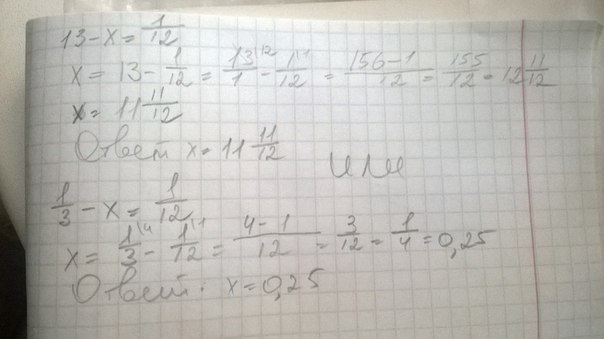 13 - x = 1/12
x = 13 - 1/12 = 13\12/1 - 1\1/12 = 156-1/12 = 155/12 = 12 11/12
x = 11 11/12
Ответ x = 11 11/12
или
1/3 - x = 1/12
x = 1\4/3 - 1\1/12 = 4-1/12 = 3/12 = 1/4 = 0,25
Ответ: x = 0,25